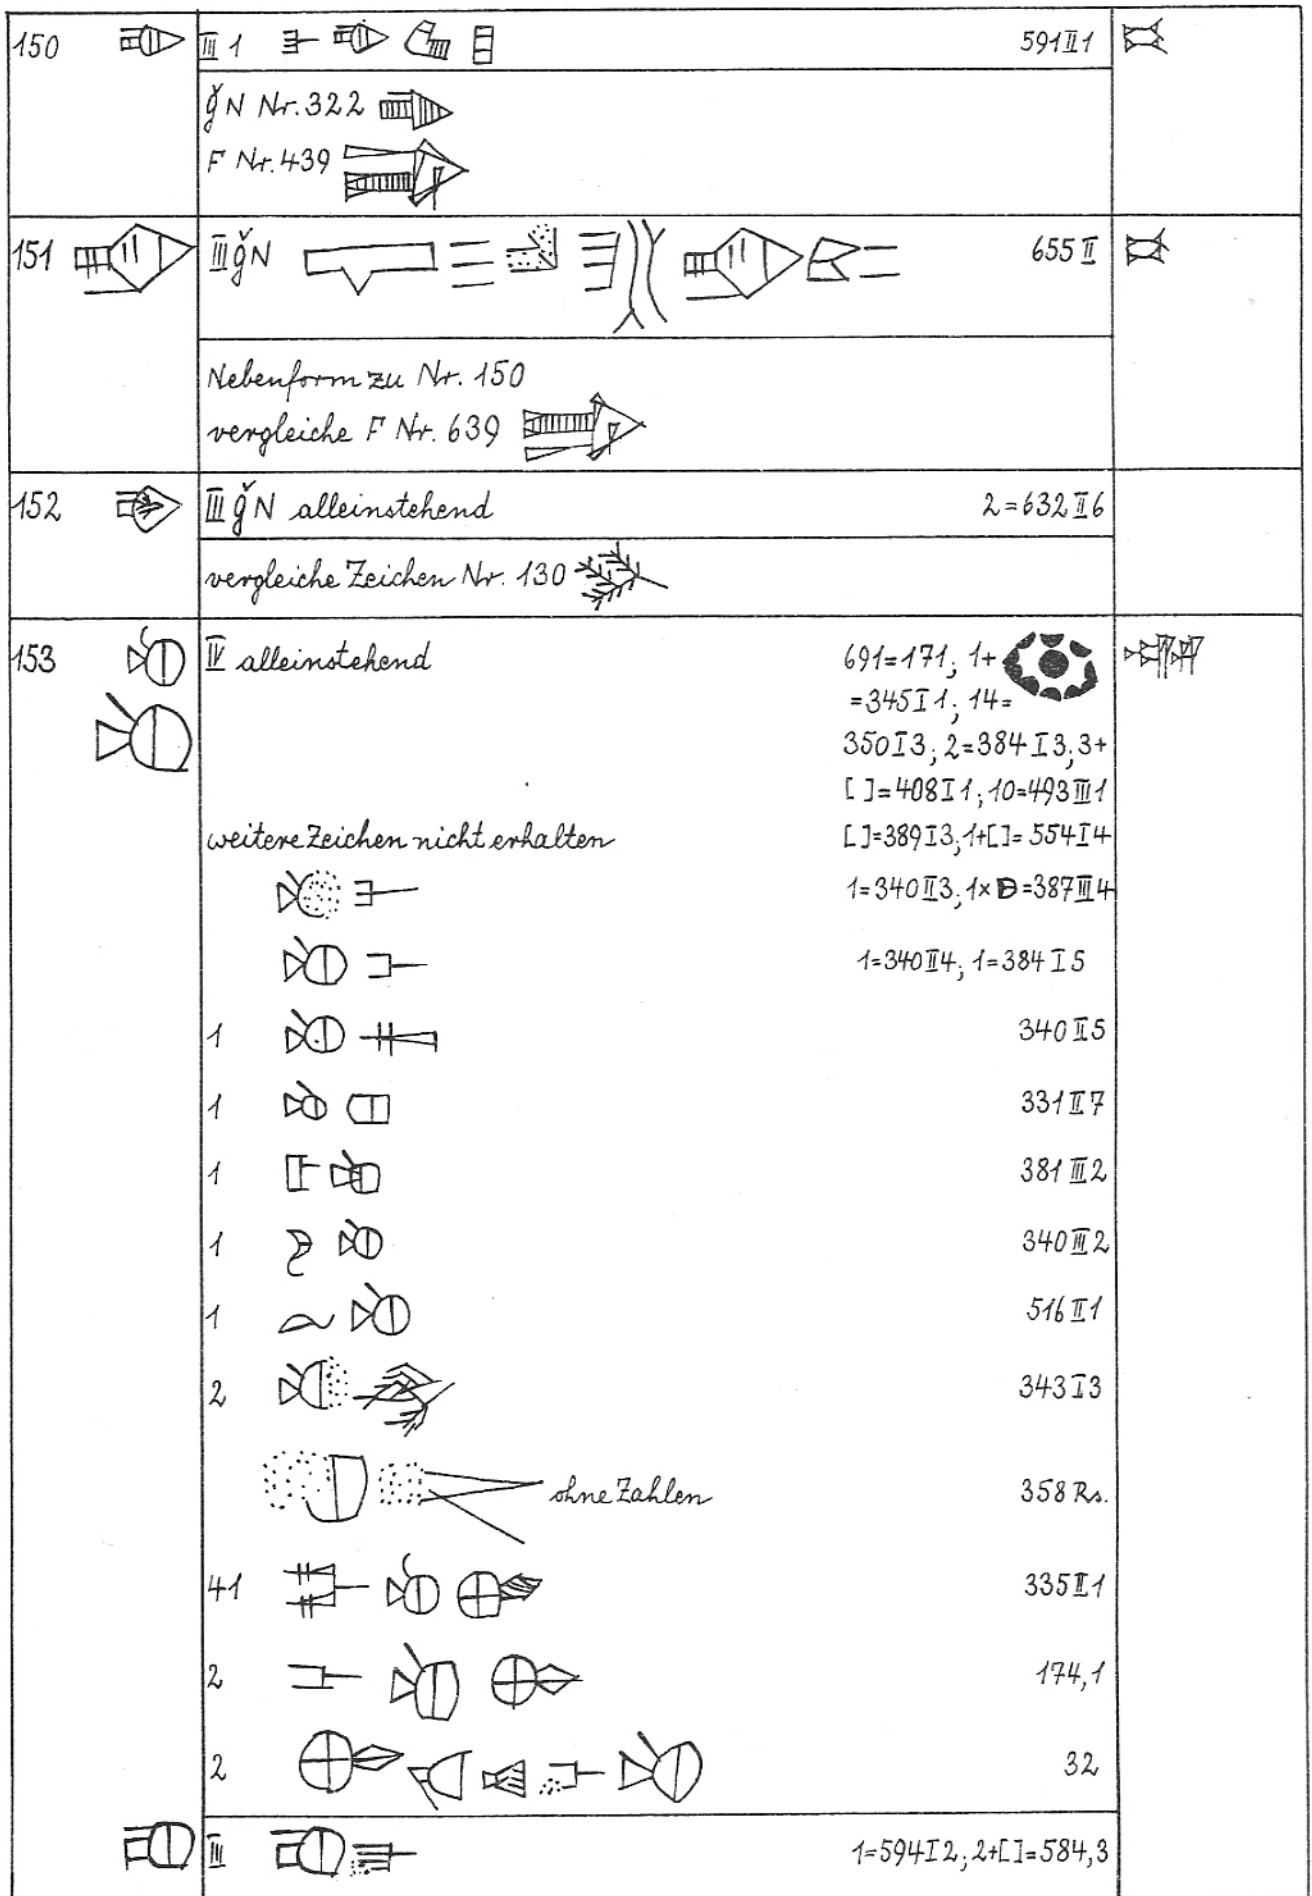 150 III 1 591 II 1
ǧN Nr. 322
F Nr. 439
151 III ǧN 655 II
Nebenform zu Nr. 150
vergleiche F Nr. 639
152 III ǧN alleinstehend 2=632 II 6
vergleiche Zeichen Nr. 130
153 IV alleinstehend 691=171; 1+
=345 I 1; 14=
350 I 3; 2=384 I 3; 3+
[ ]=408 I 1; 10=493 III 1
weitere Zeichen nicht erhalten [ ]=389 I 3; 1+[ ]=554 I 4
1=340 II 3; 1× D =387 III 4
1=340 II 4; 1=384 I 5
1 340 II 5
1 331 II 7
1 381 III 2
1 340 III 2
1 516 II 1
2 343 I 3
ohne Zahlen 358 Rs.
41 335 II 1
2 174,1
2 32
III 1=594 I 2; 2+[ ]=584,3